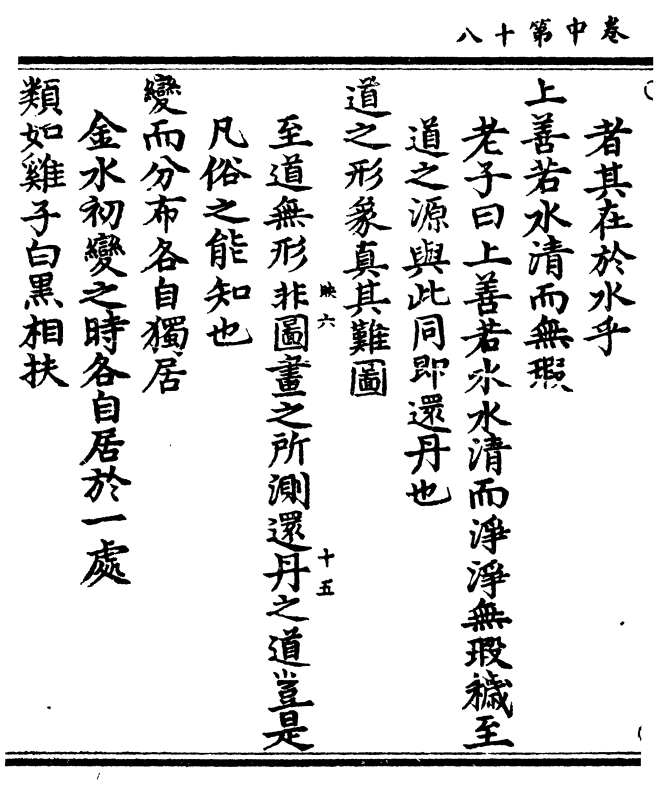 卷中第十八
者其在於水乎
上善若水清而無瑕
老子曰上善若水水清而淨淨無瑕穢至
道之源與此同即還丹也
道之形象真其難圖
至道無形非圖畫之所測還丹之道豈是
凡俗之能知也
變而分布各自獨居
金水初變之時各自居於一處
類如雞子白黑相扶
映六
十五